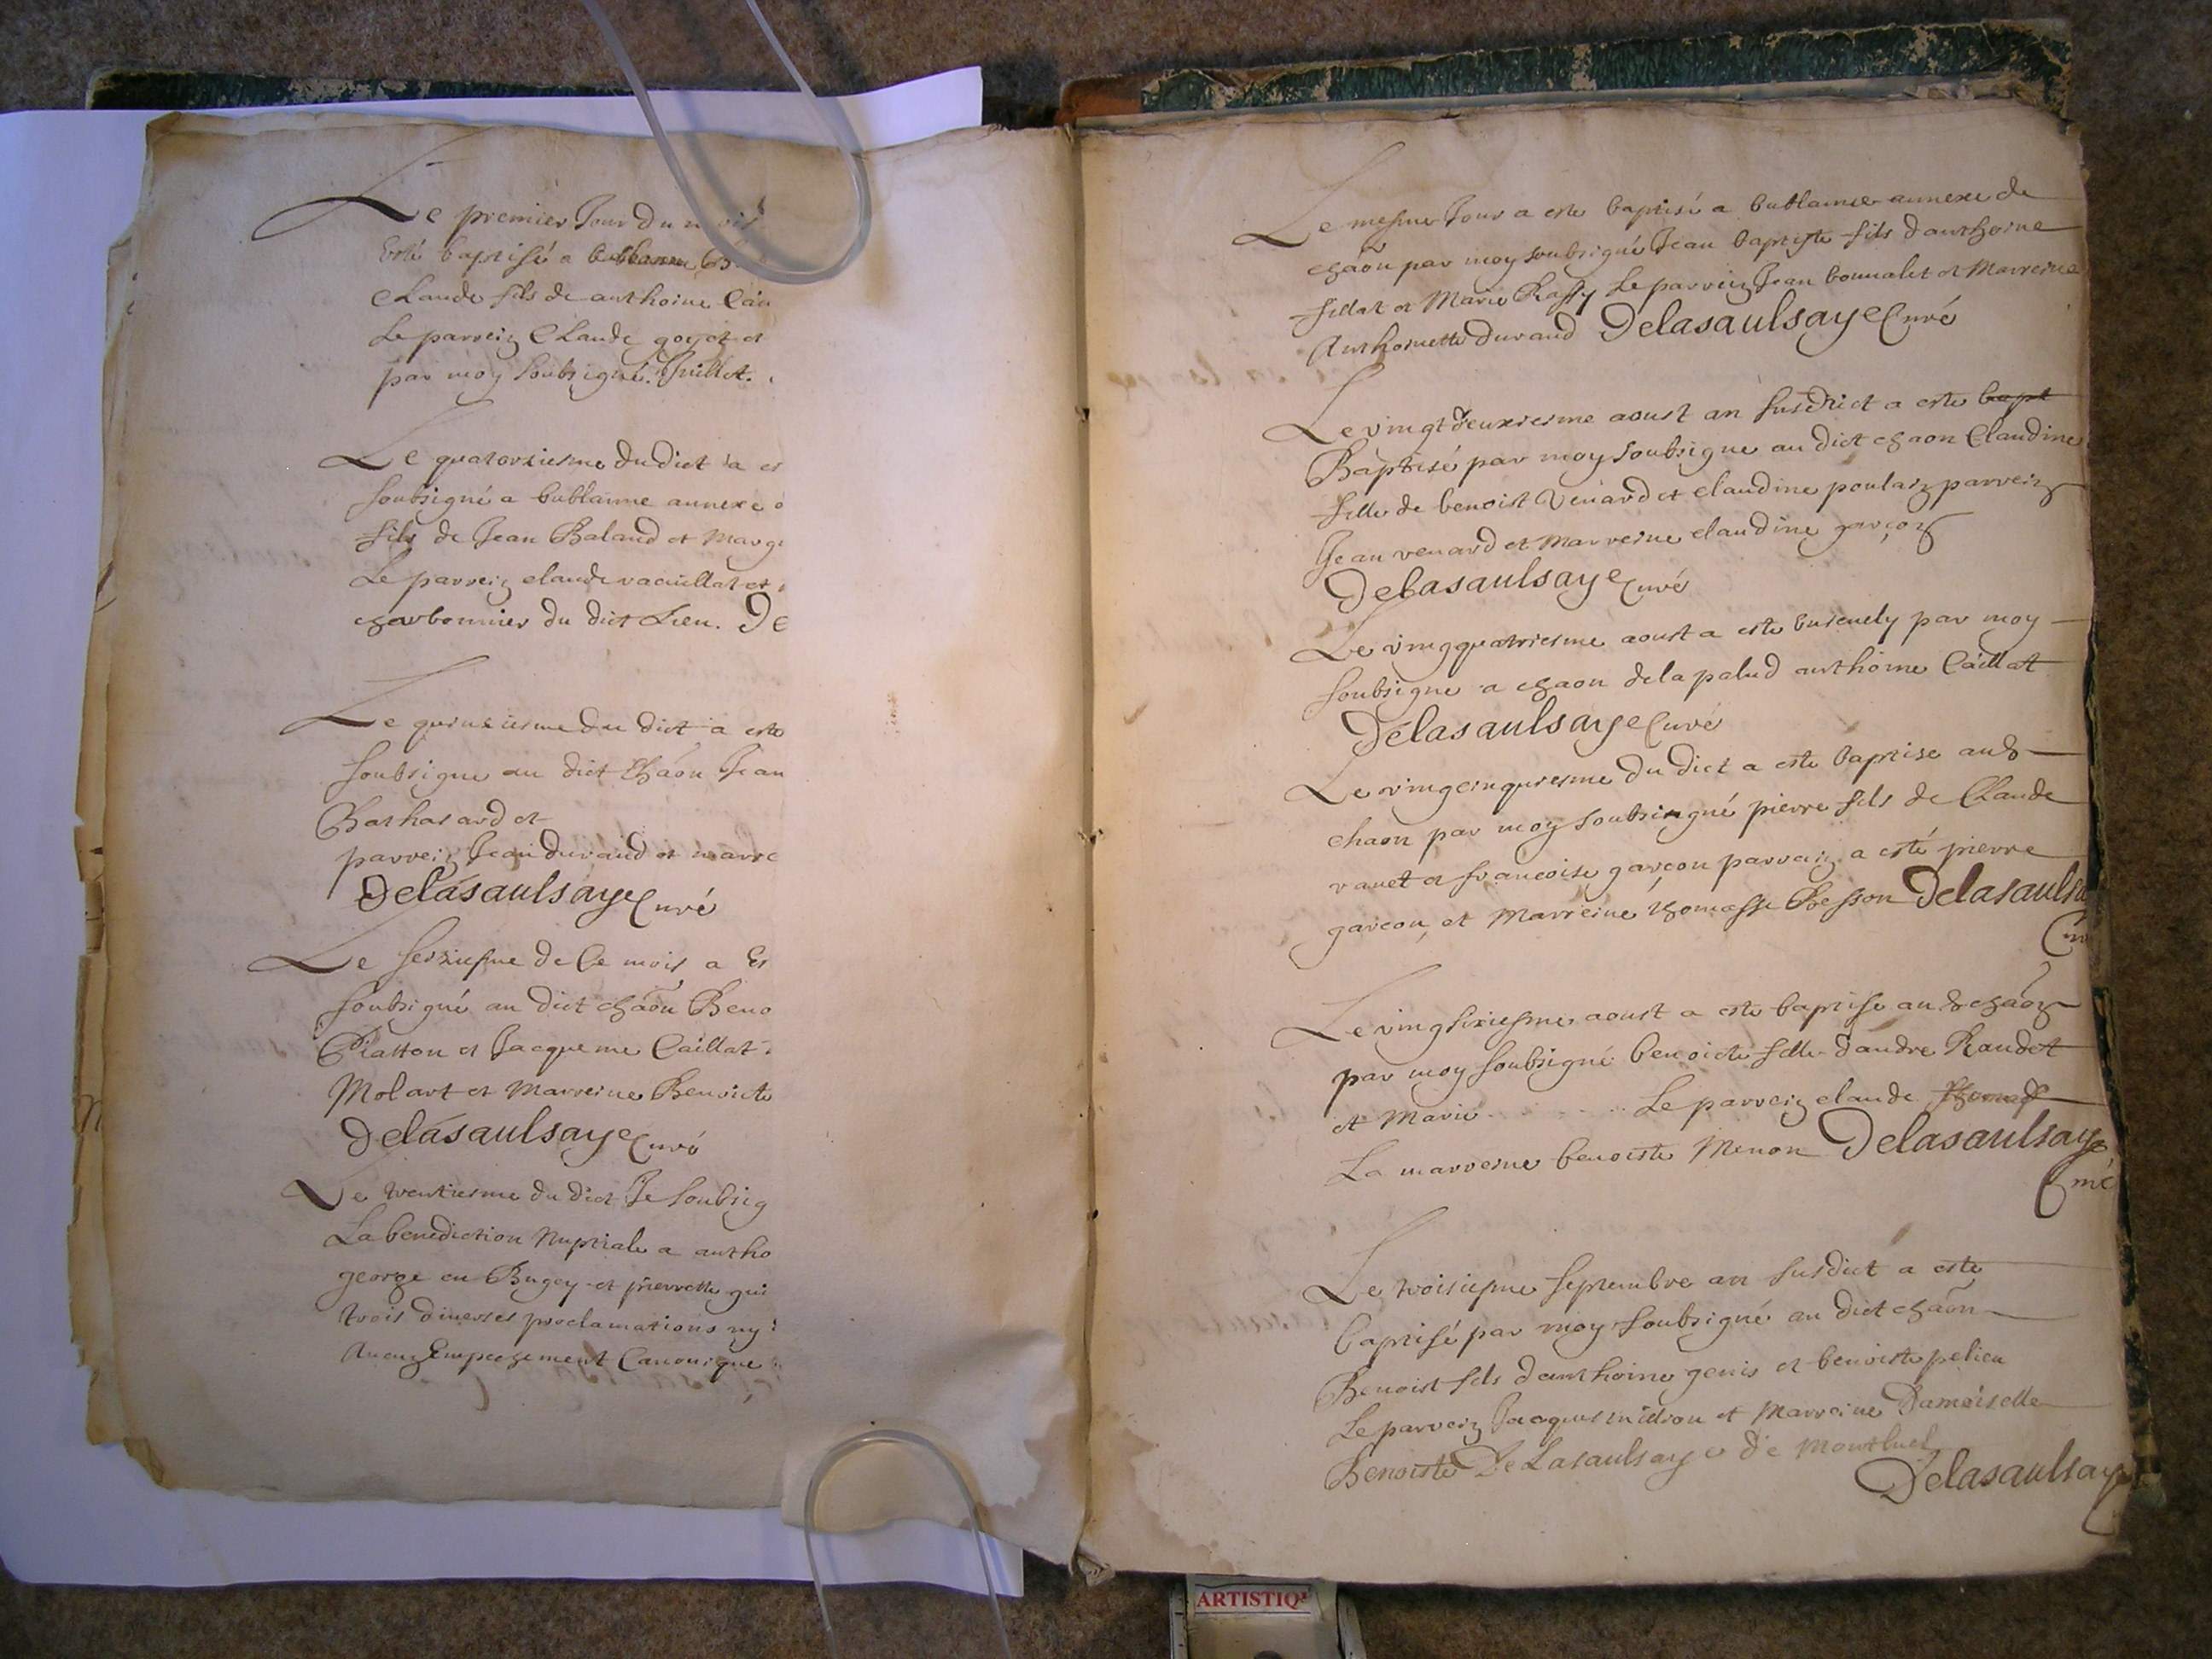 Le premier Jour du mois
Esté baptisé a bublanne
Claude fils de anthoine Cai
Le parrein Claude goyet et
par moy soubsigné. Juillet.
Le quatorziesme du dict a es
soubsigné a bublanne annexe d
fils de Jean Baland et Marg
Le parrein claude vacuillat et
charbonnier du dict Lieu. De
Le quinziesme du dict a este
soubsigne au dict Chaon Jean
Bathasard et
parrein Jean durand et marre
Delasaulsaye Curé
Le seiziesme de Ce mois a Es
soubsigné au dict chaon Beno
Piatton et Jacqueme Caillat
Molart et Marreine Benoicte
Delasaulsaye Curé
Le trentiesme du dict Je soubsig
La benediction Nuptiale a antho
george en Bugey et pierrette gui
trois diverses proclamations ny
Aucun Empechement Canonique
Le mesme Jour a este baptisé a bublanne annexe de
chaon par moy soubsigné Jean baptiste fils d'anthoine
fillat et Marie Raffy Le parrein Jean bonnalet et Marreine
Anthoinette durand Delasaulsaye Curé
Le vingtdeuxiesme aoust an susdict a este bapt
Baptisé par moy soubsigne au dict chaon Claudine
fille de benoist Venard et claudine poulan parrein
Jean venard et Marreine claudine garçon
Delasaulsaye Curé
Le vingquatriesme aoust a este Enseuely par moy
soubsigne a chaon de la palud anthoine Caillat
Delasaulsaye Curé
Le vingcinquiesme du dict a este baptise aud
chaon par moy soubsigné pierre fils de Claude
vanet et francoise garçon parrein a esté pierre
garcon, et Marreine thomasse Besson Delasaulsa
Cur
Le vingsixiesme aoust a este baptise aud chaon
par moy soubsigné benoiste fille d'andre Raudet
et Marie . . . . . . Le parrein claude
La marreine benoiste Menon Delasaulsaye
Curé
Le troisiesme septembre an susdict a este
baptisé par moy soubsigné au dict chaon
Benoist fils d'anthoine genis et benoiste pelieu
Le parrein Jacques million et Marreine Damoiselle
Benoiste De Lasaulsaye de Montluel
Delasaulsaye
ARTISTIQ